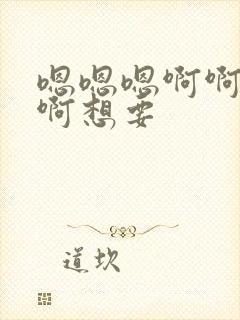 嗯嗯嗯啊啊
啊想要
道坎